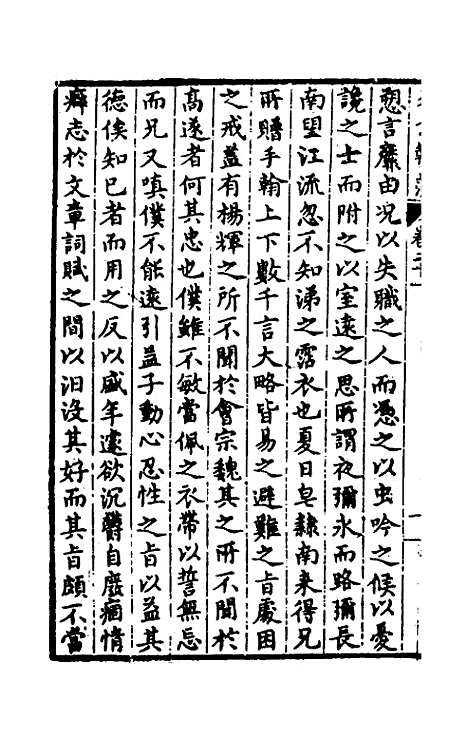 愬言靡由况以失職之人而憑之以虫吟之候以憂
讒之士而附之以室遠之思所謂夜彌永而路彌長
南望江流忽不知涕之霑衣也夏日皂隸南来得兄
所贈手翰上下數千言大略皆易之避難之旨處困
之戒益有楊輝之所不聞於會宗魏其之所不聞於
高遂者何其忠也僕雖不敏當佩之衣帶以誓無忘
而兄又嗔僕不能遠引益子動心忍性之旨以益其
德俟知已者而用之反以盛年遽欲沉欝自廢痼情
癖志於文章詞賦之間以汩没其好而其旨頗不當